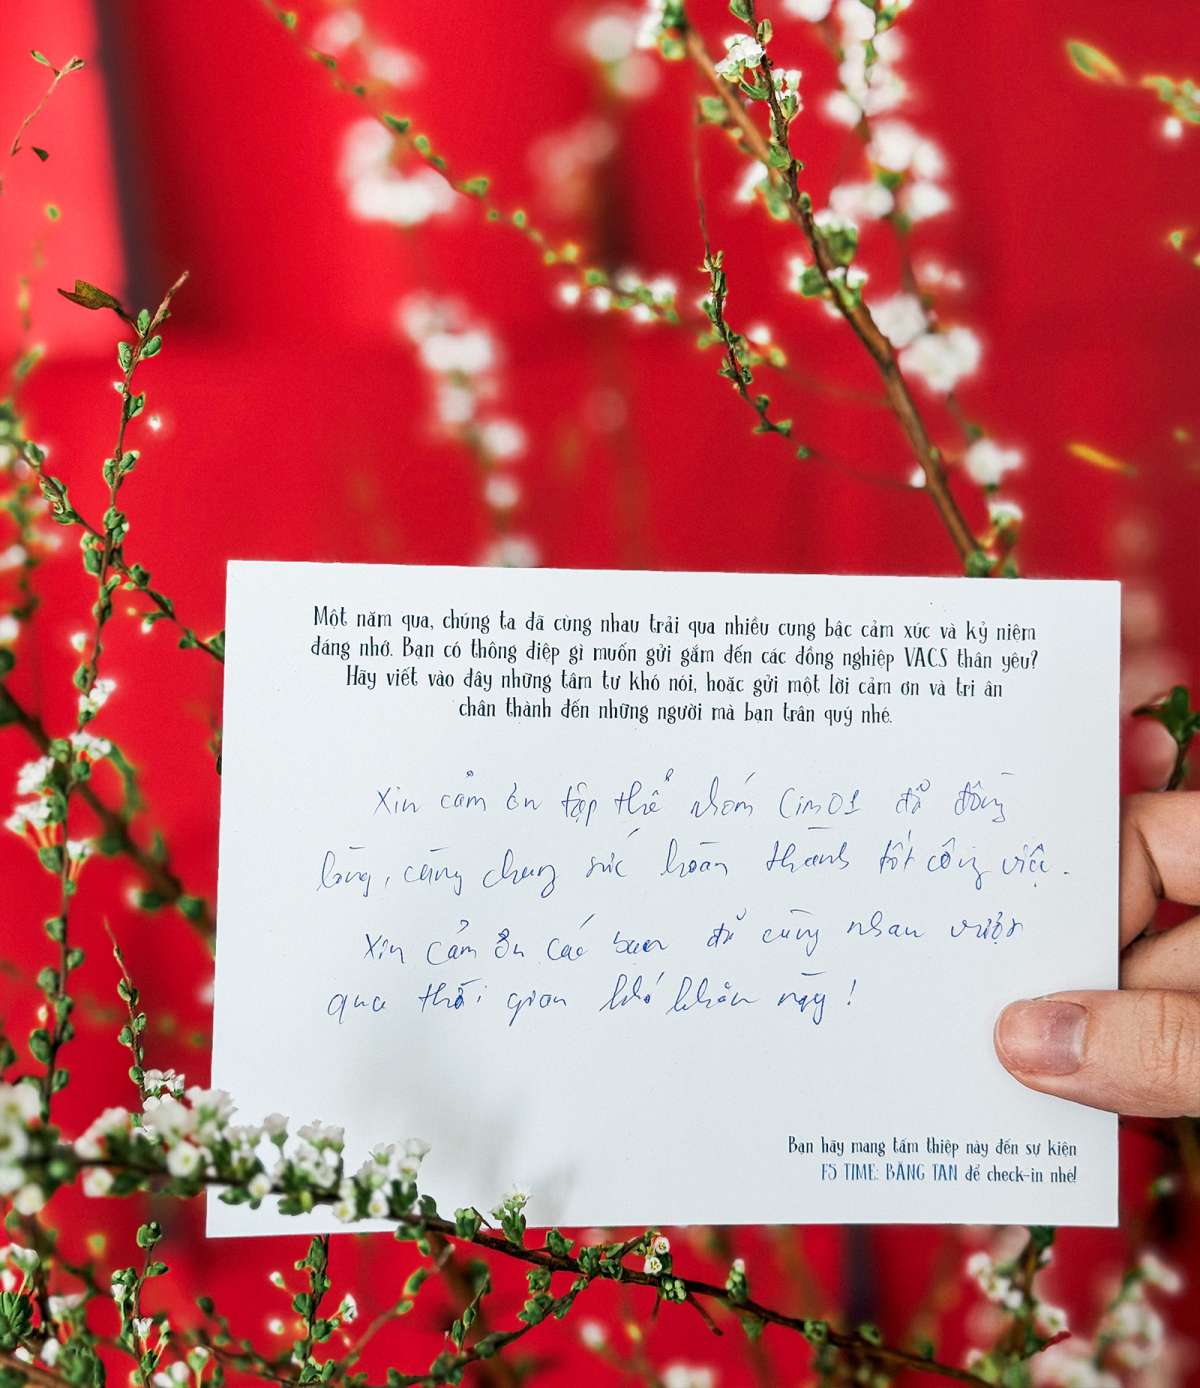 Một năm qua, chúng ta đã cùng nhau trải qua nhiều cung bậc cảm xúc và kỷ niệm
đáng nhớ. Bạn có thông điệp gì muốn gửi gắm đến các đồng nghiệp VACS thân yêu?
Hãy viết vào đây những tâm tư khó nói, hoặc gửi một lời cảm ơn và tri ân
chân thành đến những người mà bạn trân quý nhé.
Xin cảm ơn tập thể nhóm Cim01 đã đồng
lòng, cùng chung sức hoàn thành tốt công việc.
Xin cảm ơn các bạn đã cùng nhau vượt
qua thời gian khó khăn này!
Bạn hãy mang tấm thiệp này đến sự kiện
F5 TIME: BĂNG TAN để check-in nhé!